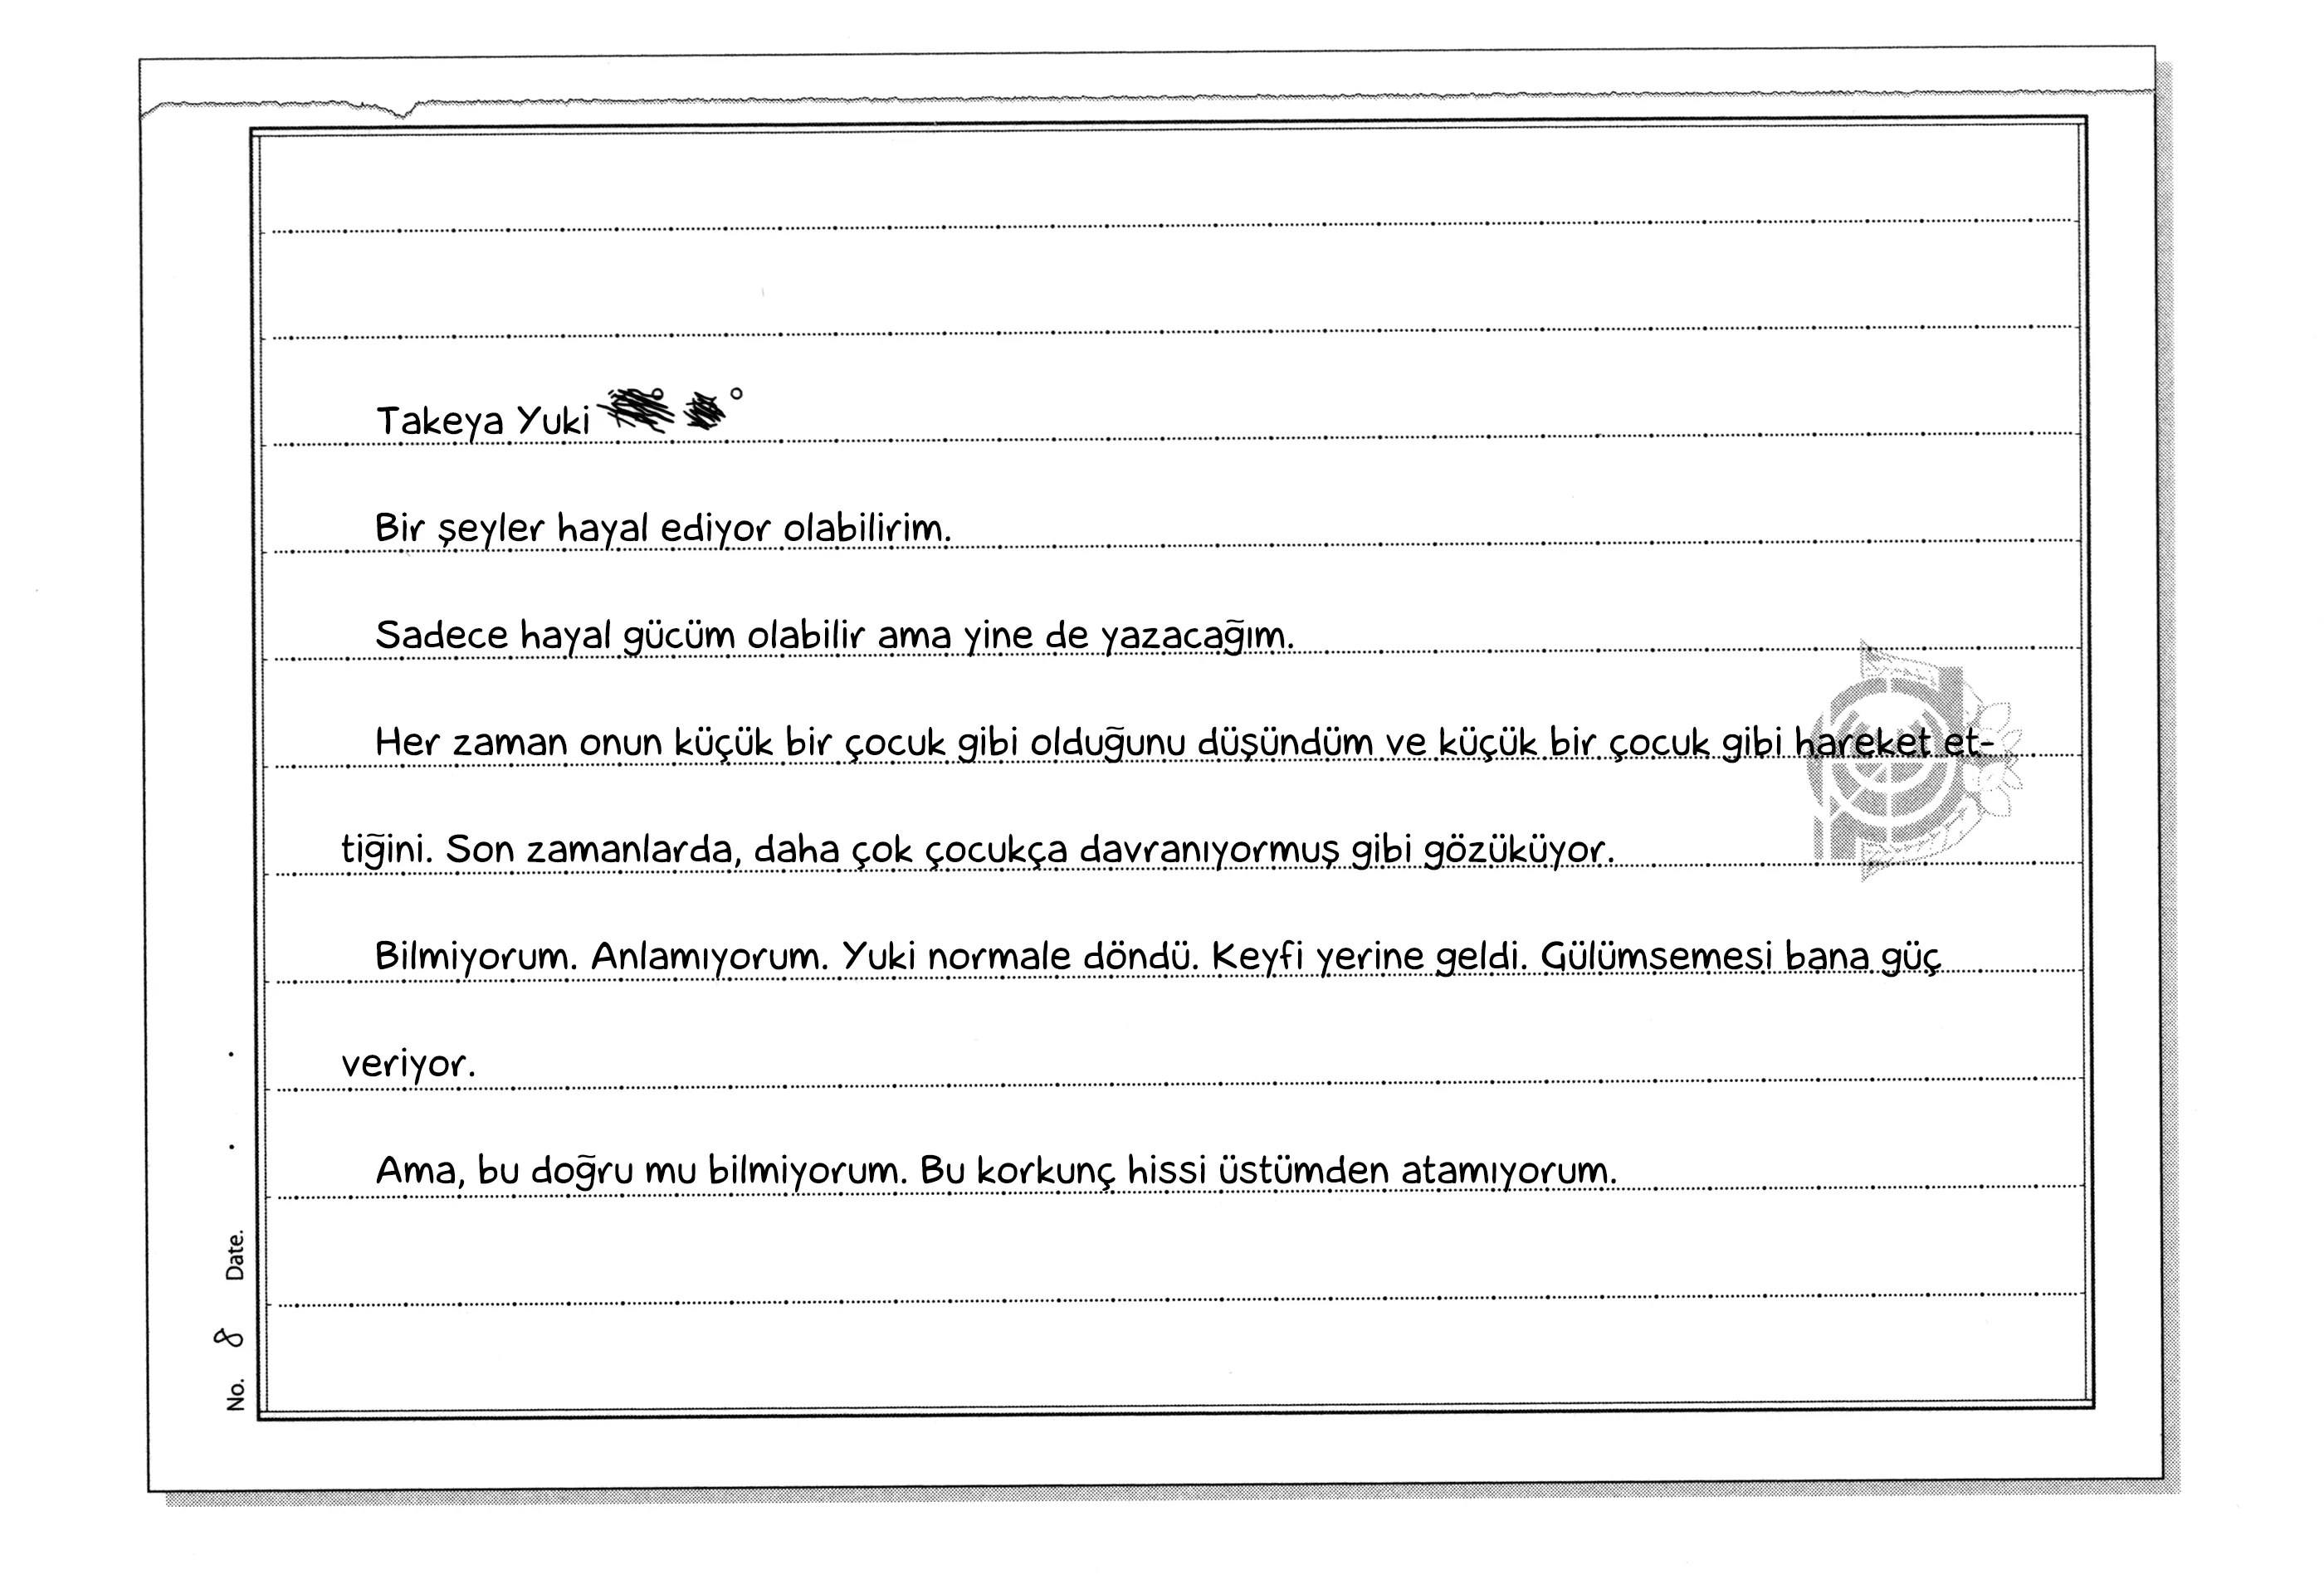 Takeya Yuki
Bir şeyler hayal ediyor olabilirim.
Sadece hayal gücüm olabilir ama yine de yazacağım.
Her zaman onun küçük bir çocuk gibi olduğunu düşündüm ve küçük bir çocuk gibi hareket et-
tiğini. Son zamanlarda, daha çok çocukça davranıyormuş gibi gözüküyor.
Bilmiyorum. Anlamıyorum. Yuki normale döndü. Keyfi yerine geldi. Gülümsemesi bana güç
veriyor.
Ama, bu doğru mu bilmiyorum. Bu korkunç hissi üstümden atamıyorum.
No. 8 Date. . .